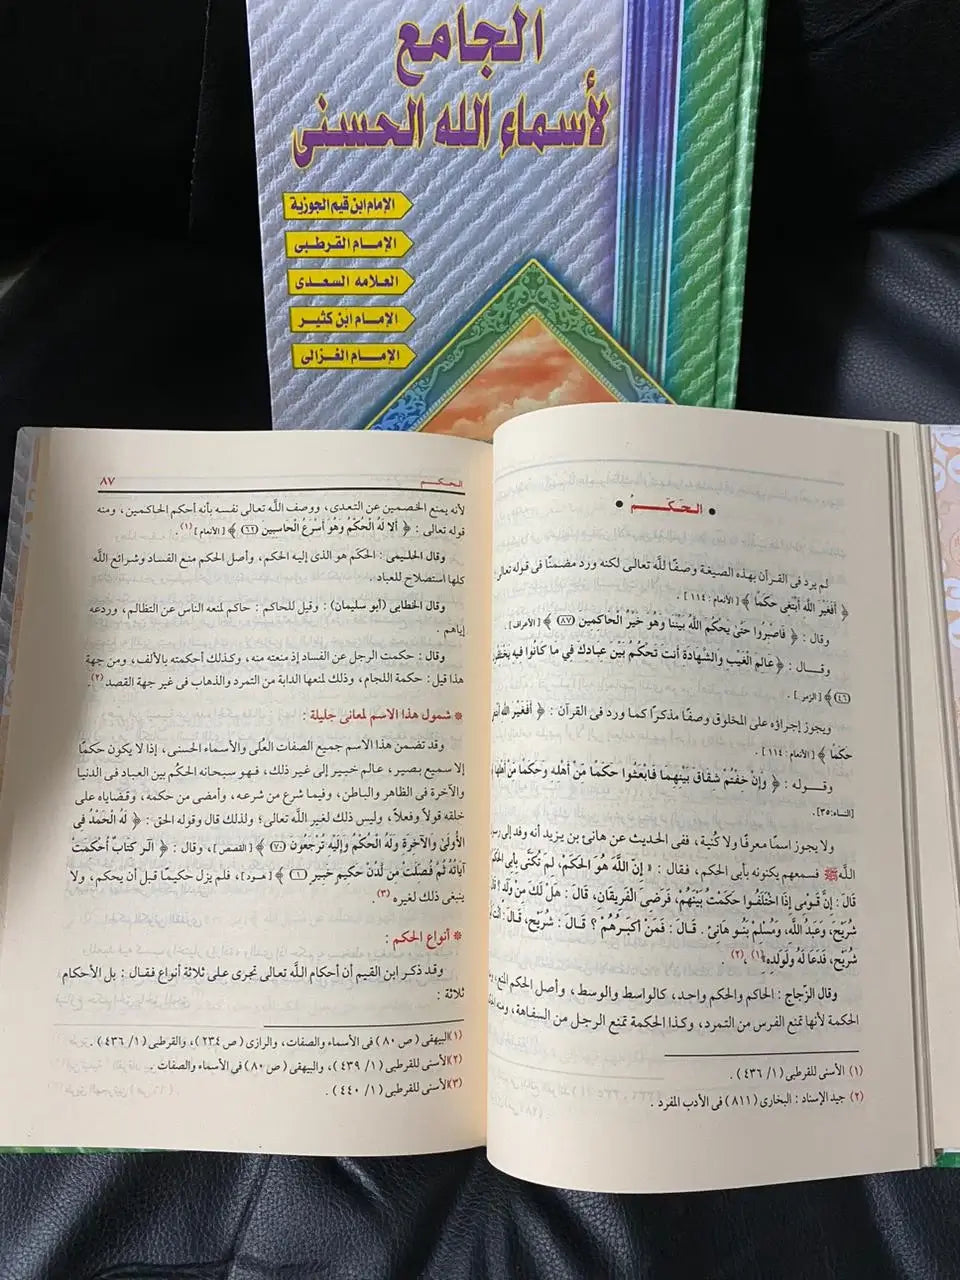 الجامع
لأسماء الله الحسنى
الإمام ابن قيم الجوزية
الإمام القرطبى
العلامه السعدى
الإمام ابن كثير
الإمام الغزالى
الحَكَمُ
لم يرد فى القرآن بهذه الصيغة وصفًا للَّه تعالى لكنه ورد مضمنًا فى قوله تعالى
﴿ أَفَغَيْرَ اللَّهِ أَبْتَغِى حَكَمًا ﴾ [الأنعام : ١١٤] .
وقال : ﴿ فَاصْبِرُوا حَتَّىٰ يَحْكُمَ اللَّهُ بَيْنَنَا وَهُوَ خَيْرُ الْحَاكِمِينَ (٨٧) ﴾ [الأعراف] .
وقـــال : ﴿ عَالِمَ الْغَيْبِ وَالشَّهَادَةِ أَنتَ تَحْكُمُ بَيْنَ عِبَادِكَ فِى مَا كَانُوا فِيهِ
(٤٦) ﴾ [الزمر] .
ويجوز إجراؤه على المخلوق وصفًا مذكرًا كما ورد فى القرآن : ﴿ أَفَغَيْرَ اللَّهِ
حَكَمًا ﴾ [الأنعام : ١١٤] .
وقــوله : ﴿ وَإِنْ خِفْتُمْ شِقَاقَ بَيْنِهِمَا فَابْعَثُوا حَكَمًا مِّنْ أَهْلِهِ وَحَكَمًا مِّنْ
[النساء:٣٥].
ولا يجوز اسمًا معرفًا ولا كُنية، ففى الحديث عن هانئ بن يزيد أنه وفد إلى
اللَّه ﷺ فسمعهم يكنونه بأبى الحكم، فقال : « إِنَّ اللَّهَ هُوَ الحَكَمُ، لِمَ تُكَنَّى بِأَبِى
قَالَ : إِنَّ قَوْمِى إِذَا اخْتَلَفُوا حَكَمْتُ بَيْنَهُمْ، فَرَضِىَ الْفَرِيقَانِ، قَالَ : هَلْ لَكَ مِنْ وَلَدٍ ؟
شُرَيْحٌ، وَعَبْدُ اللَّهِ، وَمُسْلِمٌ بَنُو هَانِئٍ . قَالَ : فَمَنْ أَكْبَرُهُمْ ؟ قَالَ : شُرَيْحٌ، قَالَ :
شُرَيْحٍ، فَدَعَا لَهُ وَلِوَلَدِهِ»(١) ،(٢) .
وقال الزَّجاج : الحاكم والحكم واحد، كالواسط والوسط، وأصل الحكم المنع،
الحكمة لأنها تمنع الفرس من التمرد، وكذا الحكمة تمنع الرجل من السفاهة،
(١) الأسنى للقرطبى (١/ ٤٣٦) .
(٢) جيد الإسناد : البخارى (٨١١) فى الأدب المفرد .
الحكـم
٨٧
لأنه يمنع الخصمين عن التعدى، ووصف اللَّه تعالى نفسه بأنه أحكم الحاكمين، ومنه
قوله تعالى : ﴿ أَلا لَهُ الْحُكْمُ وَهُوَ أَسْرَعُ الْحَاسِبِينَ (٦٢) ﴾ [الأنعام](١) .
وقال الحليمى : الحَكَم هو الذى إليه الحكم، وأصل الحكم منع الفساد وشرائع اللَّه
كلها استصلاح للعباد.
وقال الخطابى (أبو سليمان) : وقيل للحاكم : حاكم لمنعه الناس عن التظالم، وردعه
إياهم .
وقال : حكمت الرجل عن الفساد إذ منعته منه، وكذلك أحكمته بالألف، ومن جهة
هذا قيل : حكمة اللجام، وذلك لمنعها الدابة من التمرد والذهاب فى غير جهة القصد (٢).
* شمول هذا الاسم لمعانى جليلة :
وقد تضمن هذا الاسم جميع الصفات العُلى والأسماء الحسنى، إذا لا يكون حكمًا
إلا سميع بصير، عالم خبير إلى غير ذلك، فـهو سبحانه الحكَم بين العباد فى الدنيا
والآخرة فى الظاهر والباطن، وفيما شرع من شرعـه، وأمضى من حكمه، وقضاياه على
خلقه قولاً وفعلاً، وليس ذلك لغير اللَّه تعالى؛ ولذلك قال وقوله الحق : ﴿ لَهُ الْحَمْدُ فِى
الأُولَىٰ وَالآخِرَةِ وَلَهُ الْحُكْمُ وَإِلَيْهِ تُرْجَعُونَ (٧٠) ﴾ [القصص]، وقال : ﴿ الٓر كِتَابٌ أُحْكِمَتْ
آيَاتُهُ ثُمَّ فُصِّلَتْ مِن لَّدُنْ حَكِيمٍ خَبِيرٍ (١) ﴾ [هـود]، فلم يزل حكيمًا قبل أن يحكم، ولا
ينبغى ذلك لغيره (٣) .
* أنواع الحكم :
وقد ذكر ابن القيم أن أحكام اللَّه تعالى تجرى على ثلاثة أنواع فقال : بل الأحكام
ثلاثة :
(١)البيهقى ( ص ٨٠) فى الأسماء والصفات، والرازى ( ص ٢٣٤)، والقرطبى (١/ ٤٣٦) .
(٢)الأسنى للقرطبى (١/ ٤٣٩)، والبيهقى ( ص ٨٠) فى الأسماء والصفات .
(٣)الأسنى للقرطبى (١/ ٤٤٠) .